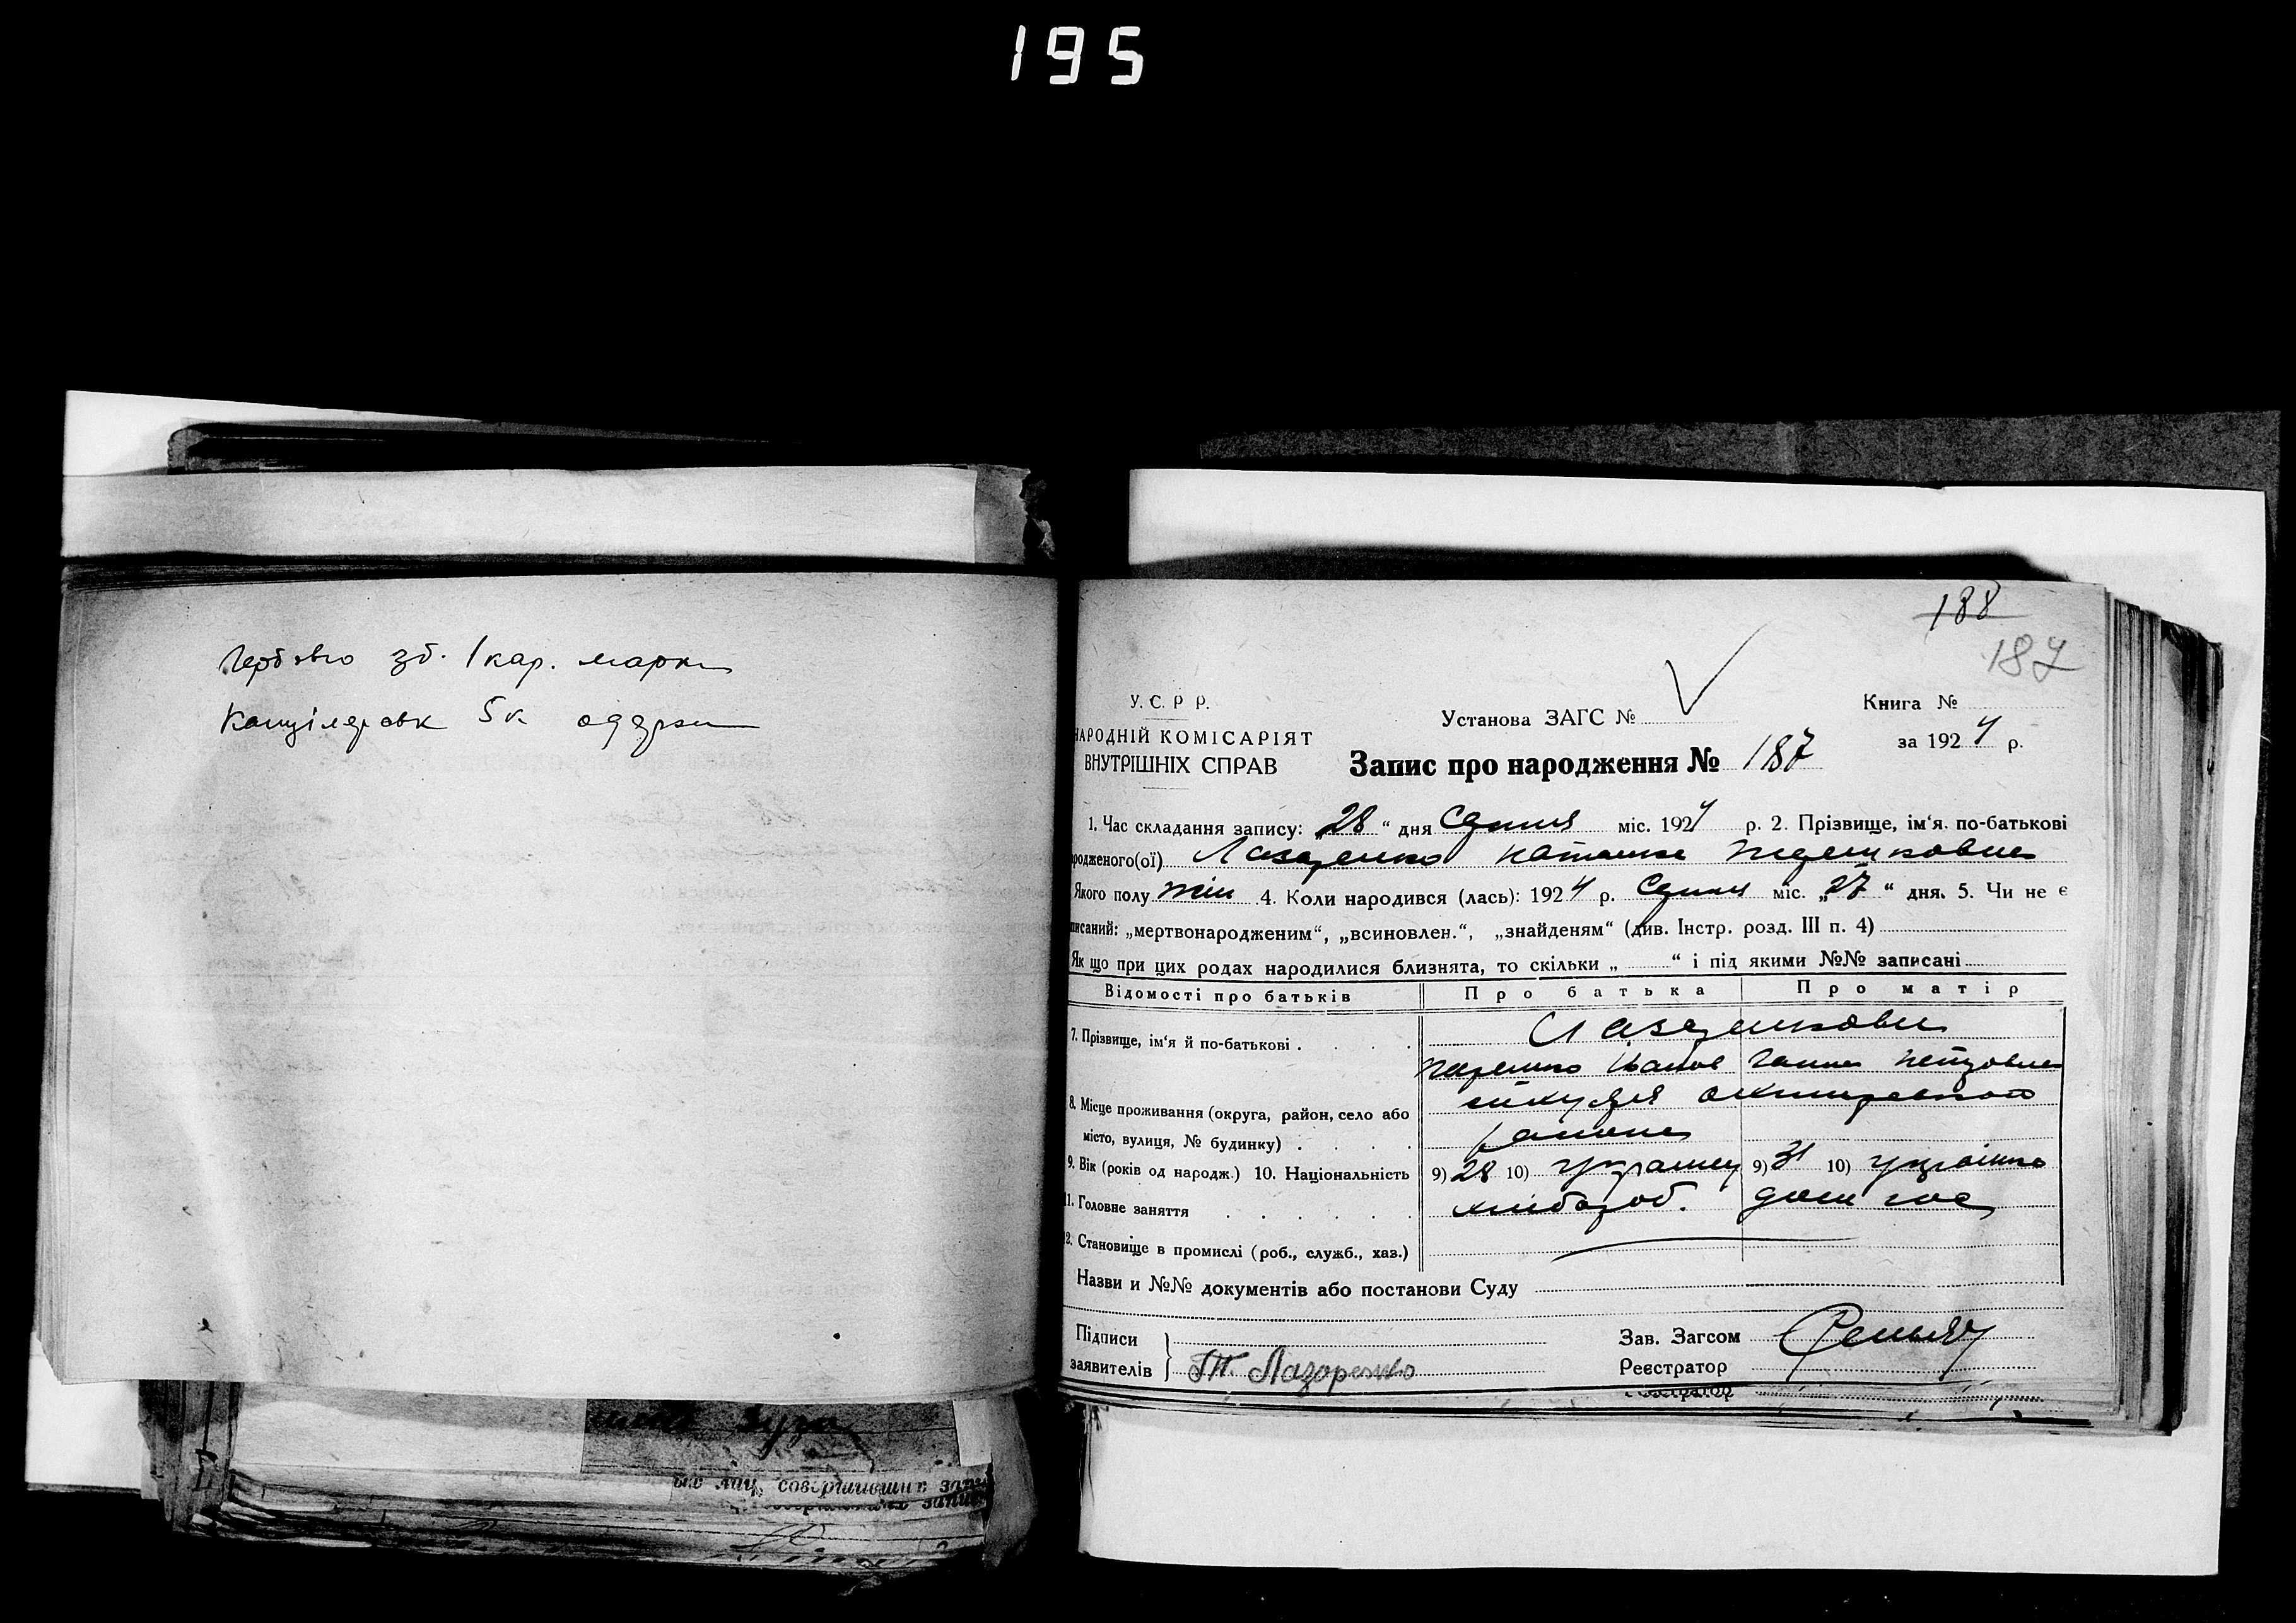 195
Гербово зб. 1 кар. марки
Канцілярськ 5 к одержи
188
187
У. С. Р. Р.
НАРОДНІЙ КОМІСАРІЯТ
ВНУТРІШНІХ СПРАВ
Установа ЗАГС №
Книга №
за 1924 р.
Запис про народження № 187
1. Час складання запису: „28“ дня Серпня міс. 1924 р. 2. Прізвище, ім'я. по-батькові
родженого(ої) Лазаренко
Якого полу жін 4. Коли народився (лась): 1924 р. Серпня міс. „27“ дня. 5. Чи не є
писаний: „мертвонародженим“, „всиновлен.“, „знайденям“ (див. Інстр. розд. III п. 4)
Як що при цих родах народилися близнята, то скільки „ “ і під якими №№ записані
Відомості про батьків Про батька Про матір
7. Прізвище, ім'я й по-батькові . . . . Лазаренкови
Іванов Ганна Петровна
8. Місце проживання (округа, район, село або
місто, вулиця, № будинку) . . . району
9. Вік (років од народж.) 10. Національність 9) 28 10) українец 9) 31 10) українка
11. Головне заняття . . . . . . хлібороб. дом гос
12. Становище в промислі (роб., служб., хаз.)
Назви и №№ документів або постанови Суду
Підписи
заявителів Лазаренко
Зав. Загсом
Реєстратор
Реєстратор
лиц, совершивших запи